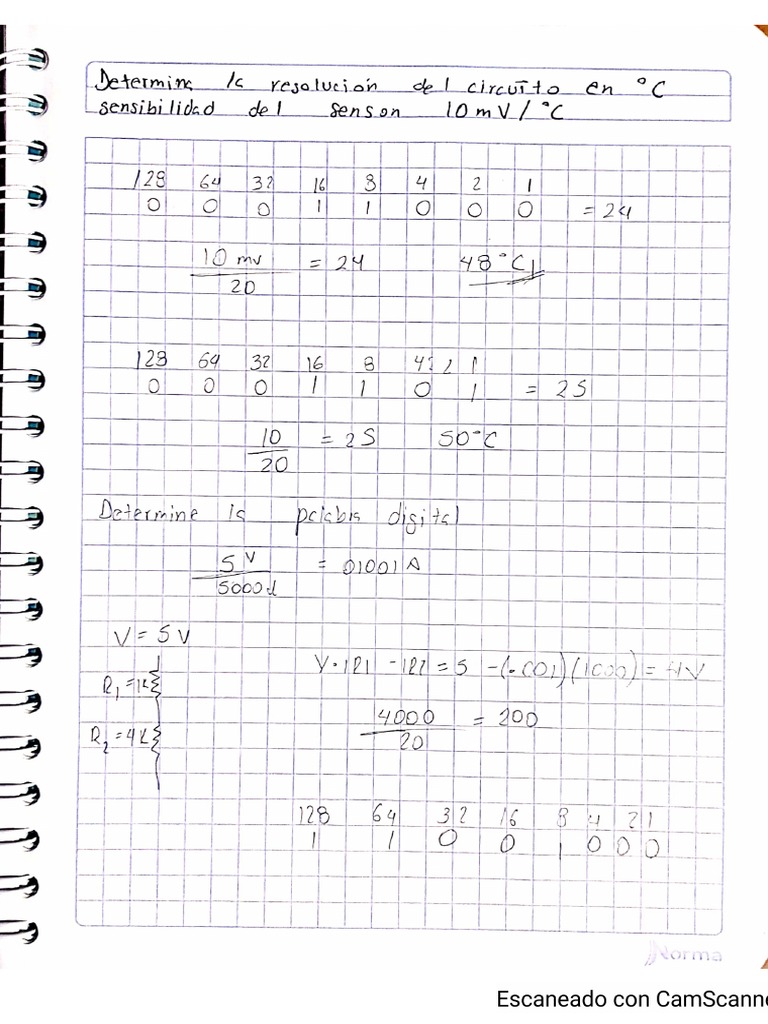 Determine la resolución del circuito en °C
sensibilidad del senson 10mV/°C
128 64 32 16 8 4 2 1
0 0 0 1 1 0 0 0 = 24
10 mv = 24 48°C
20
128 64 32 16 8 4 2 1
0 0 0 1 1 0 1 = 25
10 = 25 50°C
20
Determine la palabra digital
5V = 01001A
5000
V = 5V
V·121 - 122 = 5 - (.001)(1000) = 4V
R1=1k
4000 = 200
R2=4k
20
128 64 32 16 8 4 2 1
1 1 0 0 1 0 0 0
Norma
Escaneado con CamScanne